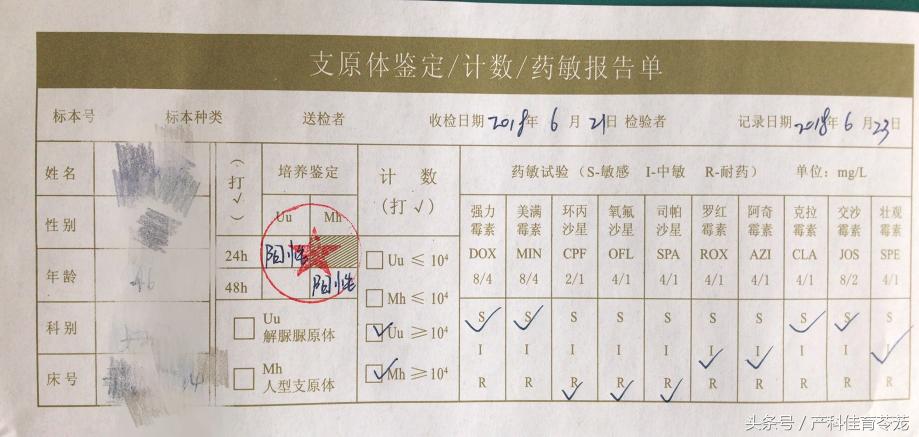 支原体鉴定/计数/药敏报告单
标本号 标本种类 送检者 收检日期 2018年 6 月 21日 检验者 记录日期 2018年 6 月 23日
姓名 (打√) 培养鉴定 计 数 药敏试验（S-敏感 I-中敏 R-耐药） 单位：mg/L
(打 √)
性别 Uu Mh 强力霉素 美满霉素 环丙沙星 氧氟沙星 司帕沙星 罗红霉素 阿奇霉素 克拉霉素 交沙霉素 壮观霉素
DOX MIN CPF OFL SPA ROX AZI CLA JOS SPE
年龄 24h 阳性 Uu ≤ 10⁴ 8/4 8/4 2/1 4/1 4/1 4/1 4/1 4/1 8/2 4/1
48h 阳性 Mh ≤ 10⁴
科别 Uu 解脲脲原体 √ Uu ≥ 10⁴ S√ S√ S S S S S S√ S√ S
I I I I I I√ I√ I I I√
床号 Mh 人型支原体 √ Mh ≥ 10⁴ R R R√ R√ R√ R R R R R
头条号 / 产科佳育苓茏